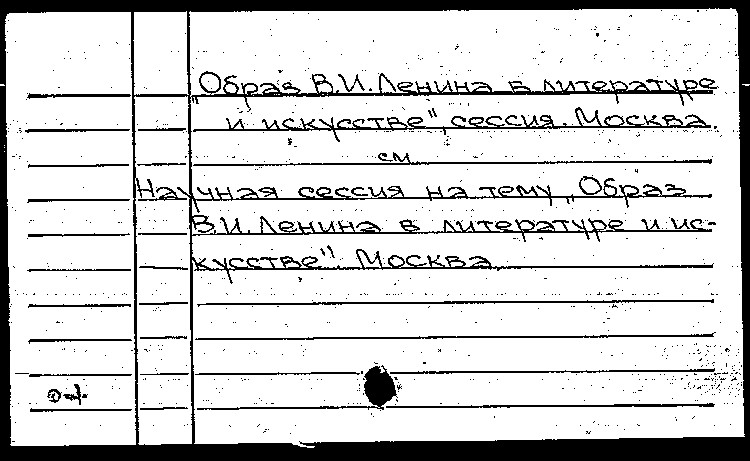 „Образ В.И. Ленина в литературе
и искусстве", сессия. Москва.
см.
Научная сессия на тему „Образ
В.И. Ленина в литературе и ис-
кусстве". Москва